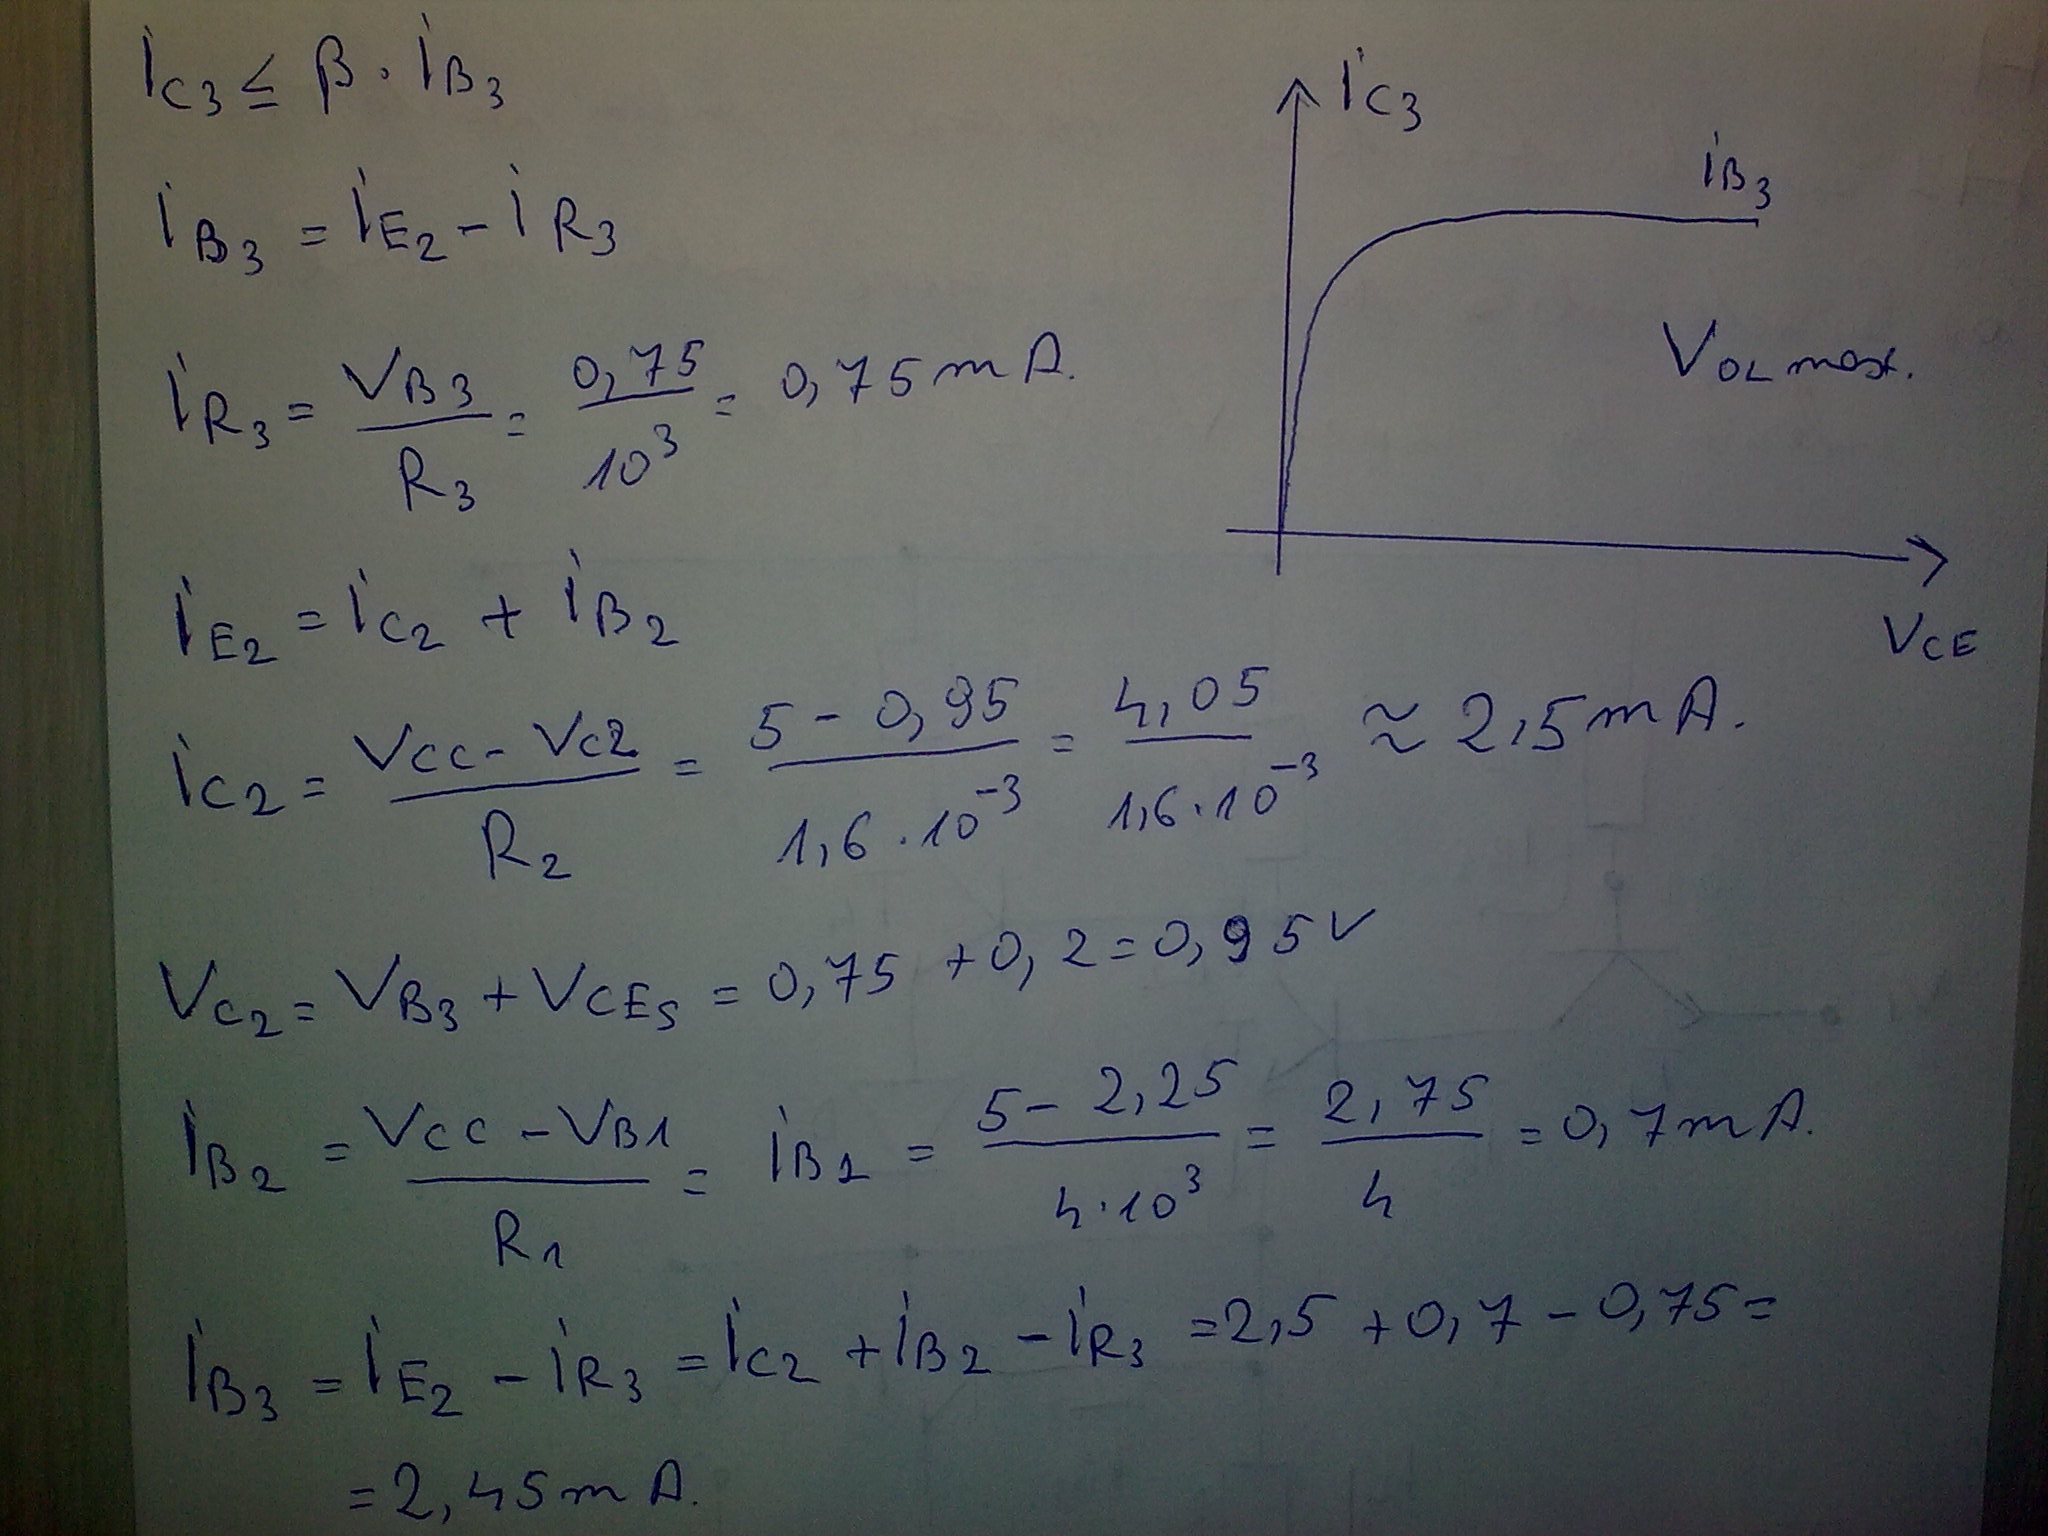 iC3 ≤ β · iB3
iB3 = iE2 - iR3
iR3 = VB3/R3 = 0,75/10³ = 0,75mA.
iC3
iB3
VOL max.
VCE
iE2 = iC2 + iB2
iC2 = (VCC - VC2)/R2 = (5 - 0,95)/(1,6 · 10⁻³) = 4,05/(1,6 · 10⁻³) ≈ 2,5mA.
VC2 = VB3 + VCES = 0,75 + 0,2 = 0,95V
iB2 = (VCC - VB1)/R1 = iB1 = (5 - 2,25)/(4 · 10³) = 2,75/4 = 0,7mA.
iB3 = iE2 - iR3 = iC2 + iB2 - iR3 = 2,5 + 0,7 - 0,75 =
= 2,45mA.